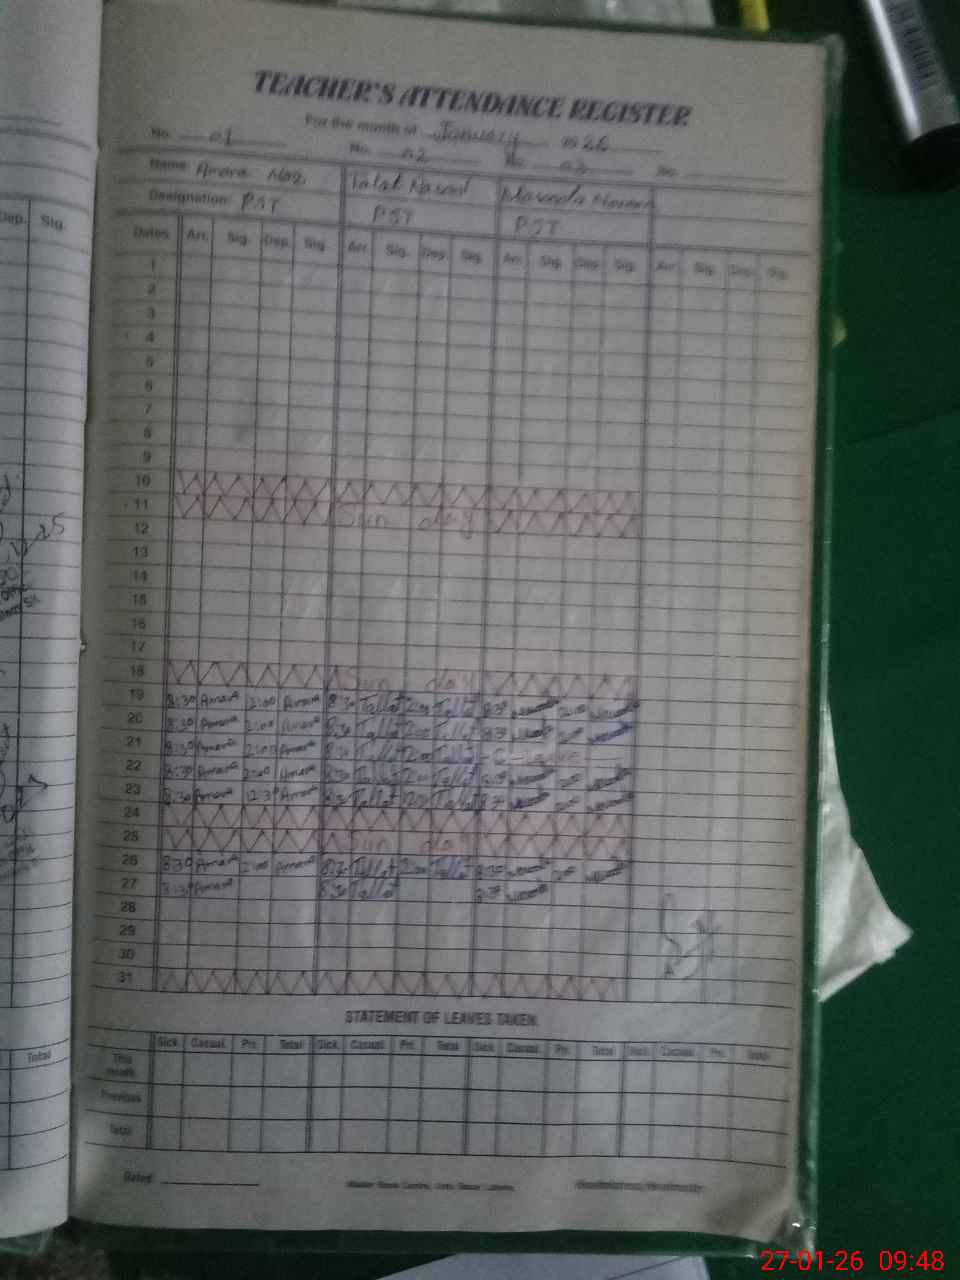 TEACHER'S ATTENDANCE REGISTER
For the month of January 026
No. 01 No. 02 No. 03 No.
Name Amara Naz Talat
Designation PST PST PST
Dates Arr. Sig. Dep. Sig. Arr. Sig. Dep. Sig. Arr. Sig. Dep. Sig. Arr. Sig. Dep. Sig.
Dep. Sig.
1
2
3
4
5
6
7
8
9
10
11 Sun day
12
13
14
15
16
17
18 Sun day
19 8:30 Amara 2:00 Amara 8:30 Tallat 2:00 Tallat 8:30 2:00
20 8:30 Amara 2:00 Amara 8:30 Tallat 2:00 Tallat 8:30 2:00
21 8:30 Amara 2:00 Amara 8:30 Tallat 2:00 Tallat C-Leave
22 8:30 Amara 2:00 Amara 8:30 Tallat 2:00 Tallat 8:30 2:00
23 8:30 Amara 12:30 Amara 8:30 Tallat Tallat 8:30
24
25 Sun day
26 8:30 Amara 2:00 Amara 8:30 Tallat 2:00 Tallat 8:30 2:00
27 8:30 Amara 8:30 Tallat 8:30
28
29
30
31
STATEMENT OF LEAVES TAKEN.
Sick. Casual. Pri. Total Sick. Casual. Pri. Total Sick. Casual. Pri. Total Sick. Casual. Pri. Total
Total
This month
Previous
Total
Dated
27-01-26 09:48